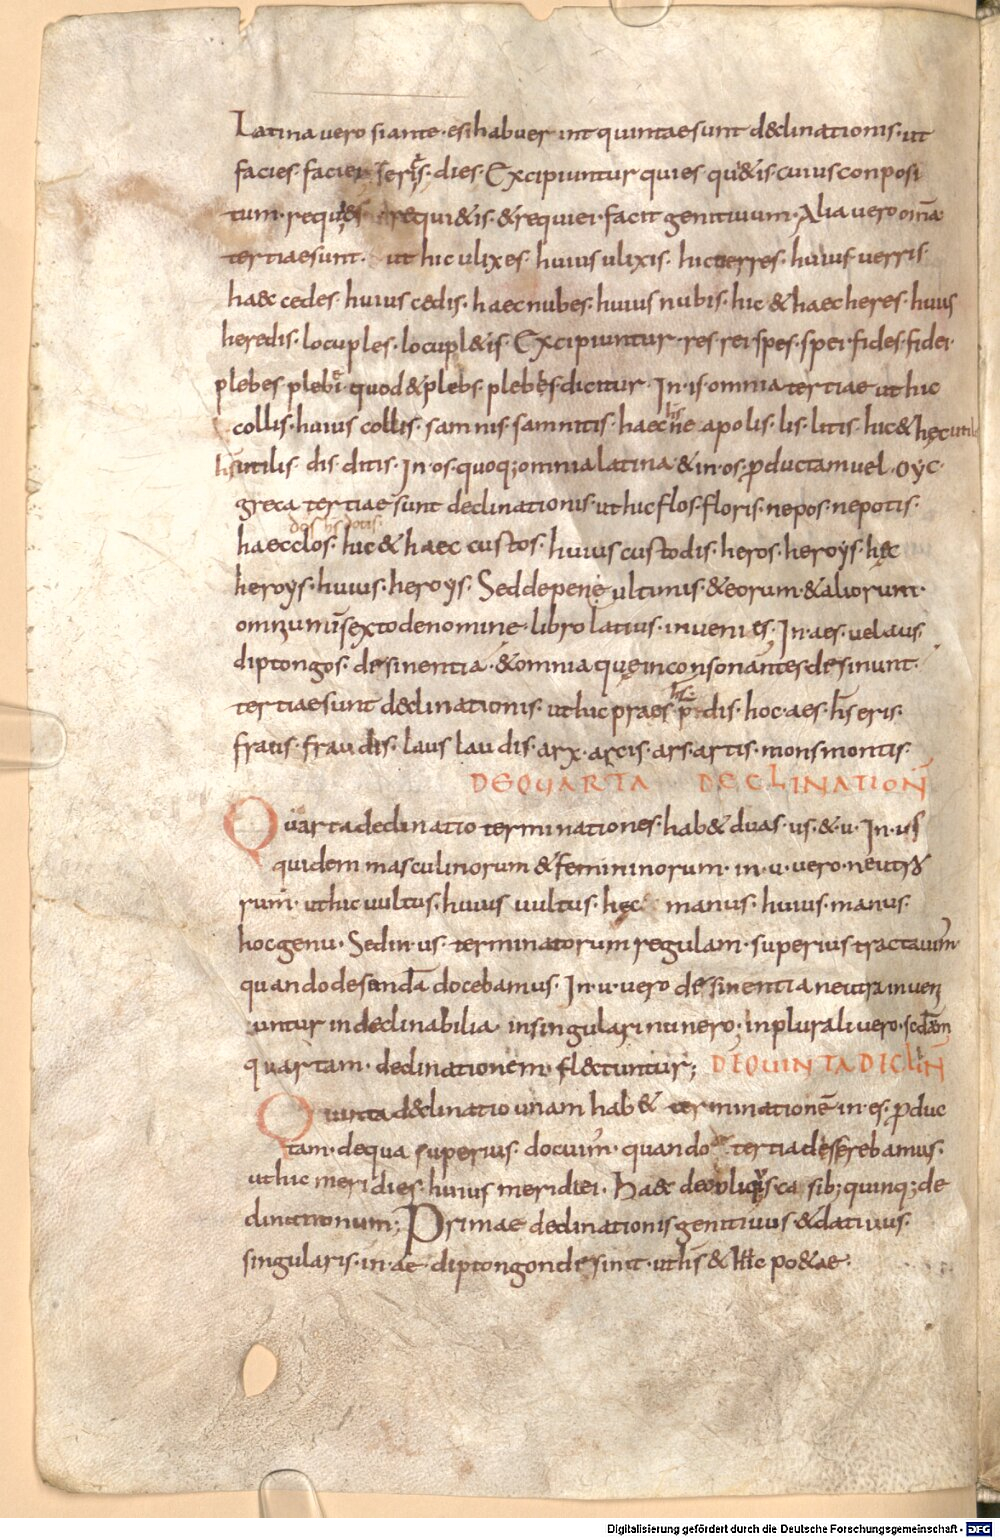 Latina vero si ante·es·i habuerint quintae sunt declinationis·ut
facies·faciei series·dies·Excipiuntur quies qu&is cuius conposi
tum·requies requi&is·&requiei·facit genitiuum·Alia uero om̄a
tertiae sunt· ut hic ulixes·huius ulixis·hic uerres·huius uerris·
haec cedes·huius cedis·haec nubes·huius nubis·hic & haec heres·huius
heredis·locuples·locupl&is·Excipiuntur·res·rei spes·spei·fides·fidei·
plebes plebei·quod & plebs·plebes dicitur·In·is·omnia tertiae ut hic
collis·huius collis·samnis·samnitis·haec neapolis·lis·litis·hic & hęc utilis
h̄s utilis·dis·ditis·In·os·quoq; omnia latina·& in·os·p̄ductam uel·oyc·
greca tertiae sunt declinationis·ut hic flos·floris·nepos·nepotis·
dos hs dotis·
haec clos·hic & haec custos·huius custodis·heros·heroys·hęc
heroys·huius·heroys·Sed de penę ultimis·& eorum·& aliorum·
omnium ī sexto de nomine·libro latius·inuenies·In·aes·uel aus·
diptongos·desinentia·& omnia quę in consonantes desinunt·
hs·
tertiae sunt declinationis·ut hic praes p̄dis·hoc·aes·h̄s eris·
fraus·fraudis·laus laudis·arx·arcis·ars·artis·mons montis·
DE QUARTA DECLINATION̄
Quarta declinatio terminationes·hab& duas·us·&·u·In·us
quidem masculinorum & femininorum·in·u·uero·neutro
rum·ut hic uultus·huius uultus·hęc manus·huius·manus·
hoc genu·Sed in·us·terminatorum regulam·superius tractauim̄
quando de secunda docebamus·In·u·uero desinentia neutra inueni
untur indeclinabilia·in singulari numero·in plurali uero·scd̄am
quartam·declinationem·fl&untur; DE QUINTA DECLIN̄
Quinta declinatio unam hab& terminationē·in·es·p̄duc
tam·de qua superius·docuim̄·quando de tertia desserebamus·
ut hic meridies·huius meridiei·Haec de obliquis casib; quinq; de
clinationum; Primae declinationis genitiuus & datiuus·
singularis·in·ae·diptongon desinit·ut h̄s & huic po&ae·
Digitalisierung gefördert durch die Deutsche Forschungsgemeinschaft · DFG